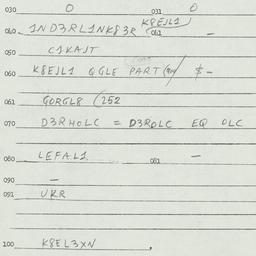 030 O 031 O
040 1ND3RL1NK83R K8EJL1 041 -
050 C1KAJT
060 K8EJL1 QGLE PART $-
061 GORGL8 (252
070 D3RHOLC = D3ROLC EQ OLC
080 LEFAL1 081 -
090 -
091 UKR
100 K8EL3XN